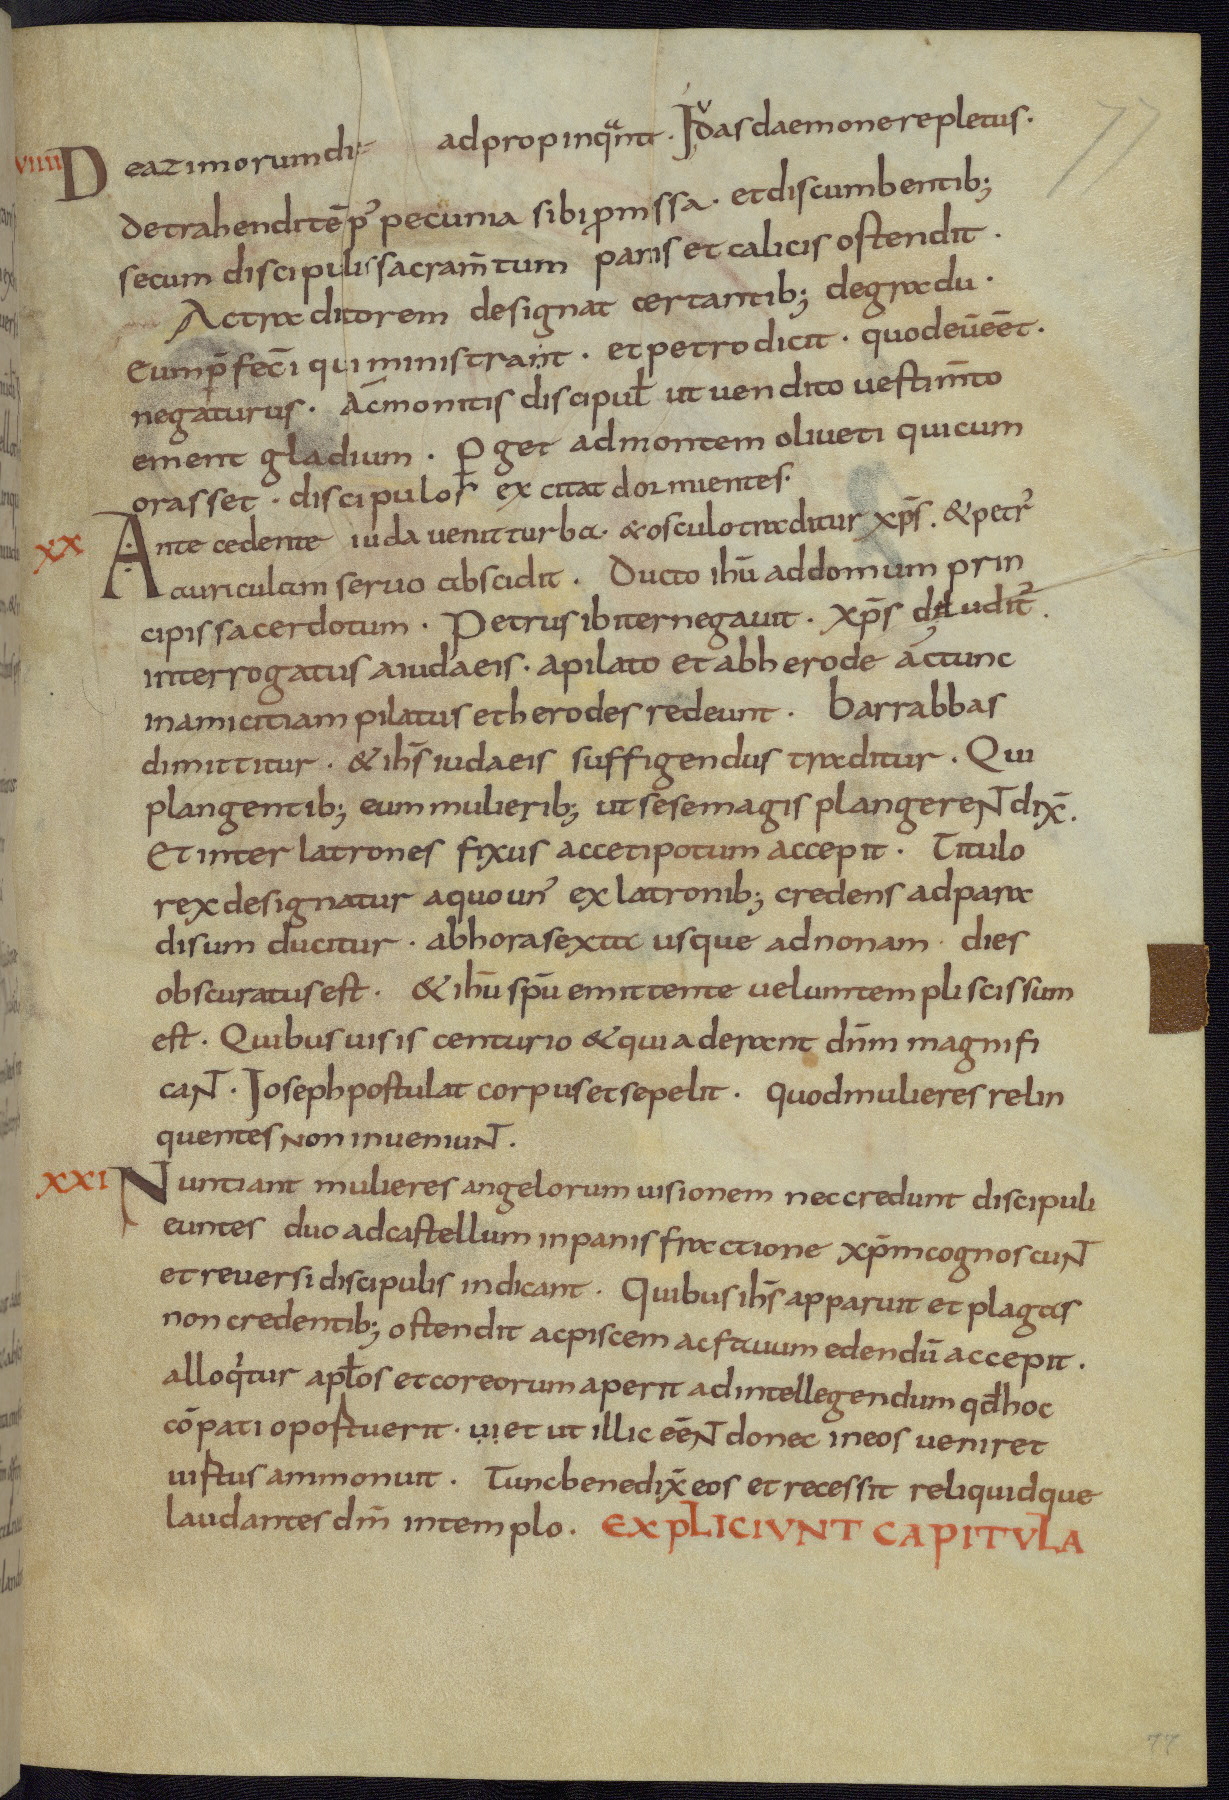 77
VIIII De azimorum di adpropinquant. Iudas daemone repletus.
de trahendi tēpr̄ pecunia sibi promssa. et discumbentib;
secum discipulis sacram̄tum panis et calicis ostendit.
Ac traditorem designat certantib; de gradu.
eum p̄feci qui ministrant. et petro dicit. quod eūēēt.
negaturus. Ac̄monitis discipul̄ ut uendito uestim̄to
ement gladium. Perget ad montem oliueti qui cum
orasset. discipulos excitat dormientes.
XX Antecedente iuda uenit turba. & osculo traditur xp̄s. & petr᾿
auriculam seruo abscidit. Ducto ihū ad domum prin
cipis sacerdotum. Petrus ibi ter negauit. xp̄s deludit᾿.
interrogatus a iudaeis. a pilato et ab herode ac tunc
in amicitiam pilatus et herodes redeunt. barrabbas
dimittitur. & ihs̄ iudaeis suffigendus traditur. Qui
plangentib; eum mulierib; ut sese magis plangerent dix̄.
Et inter latrones fixus acceti potum accepit. Titulo
rex designatur a quo un᾿ ex latronib; credens ad para
disum ducitur. ab hora sexta usque ad nonam dies
obscuratus est. & ihū spū emittente uelum templi scissum
est. Quibus uisis centurio & qui aderant dn̄m magnifi
cant. Ioseph postulat corpus et sepelit. quod mulieres relin
quentes non inueniunt.
XXI Nuntiant mulieres angelorum uisionem nec credunt discipuli
euntes duo ad castellum in panis fractione xp̄m cognoscunt
et reuersi discipulis indicant. Quibus ihs̄ apparuit et plagas
non credentib; ostendit ac piscem ac fauum edendū accepit.
alloq̇tur apl̄os et cor eorum aperit ad intellegendum qd̄ hoc
cōpati oportuerit. ui et ut illic eēnt donec in eos ueniret
uirtus ammonuit. Tunc benedix̄ eos et recessit reliquidque
laudantes dm̄ in templo. EXPLICIUNT CAPITULA
77